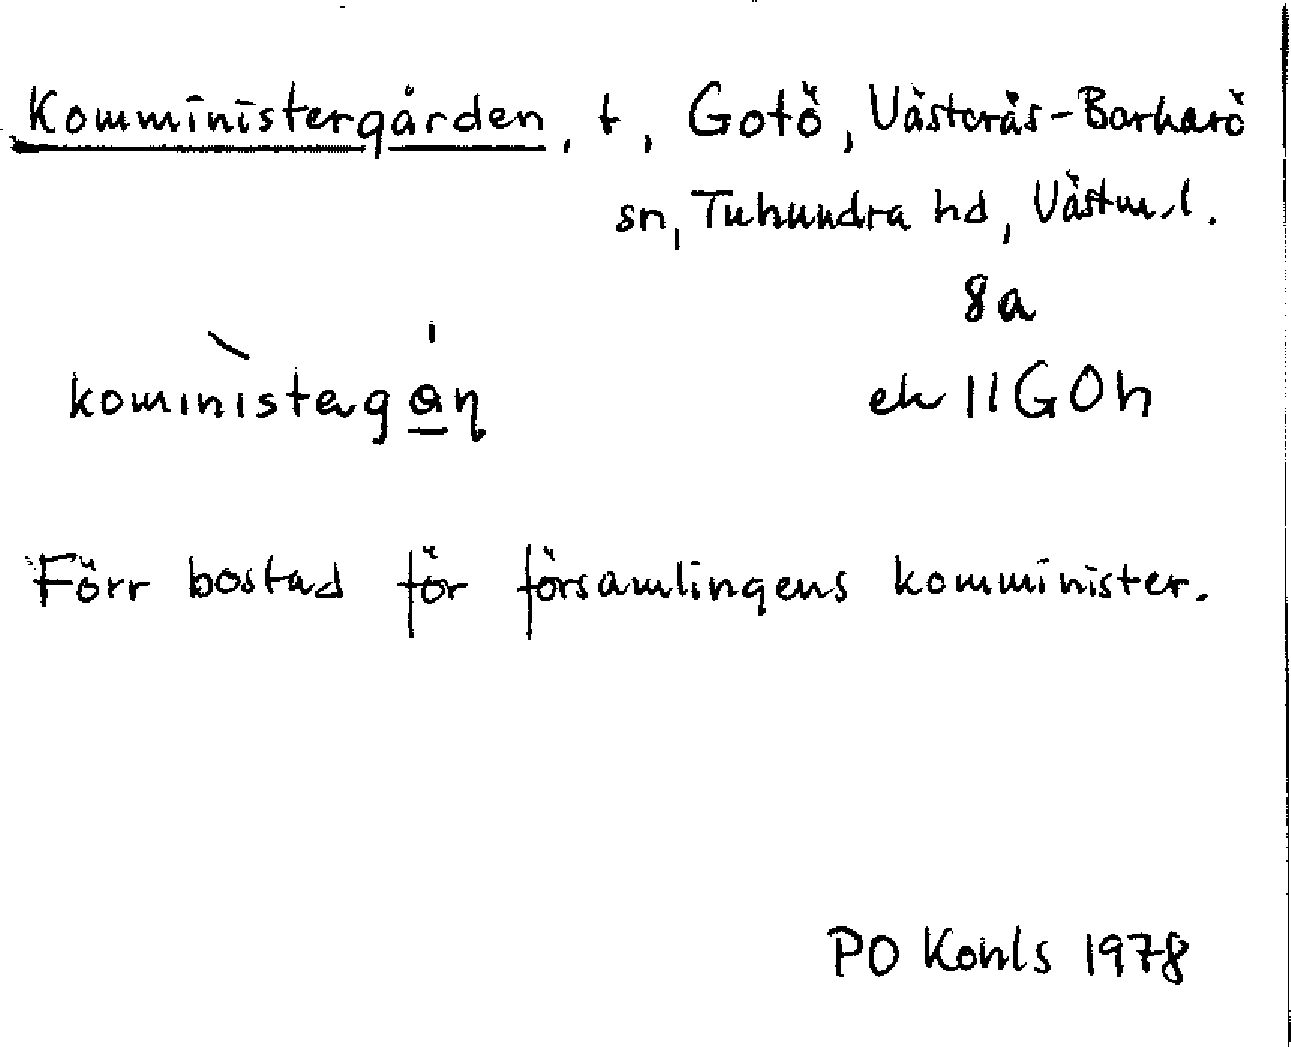 Komministergården, t, Gotö, Västerås-Barkarö
sn, Tuhundra hd, Västm.l.
8a
komìnistəgạ̊ṇ
ek 11GOh
Förr bostad för församlingens komminister.
PO Kohls 1978